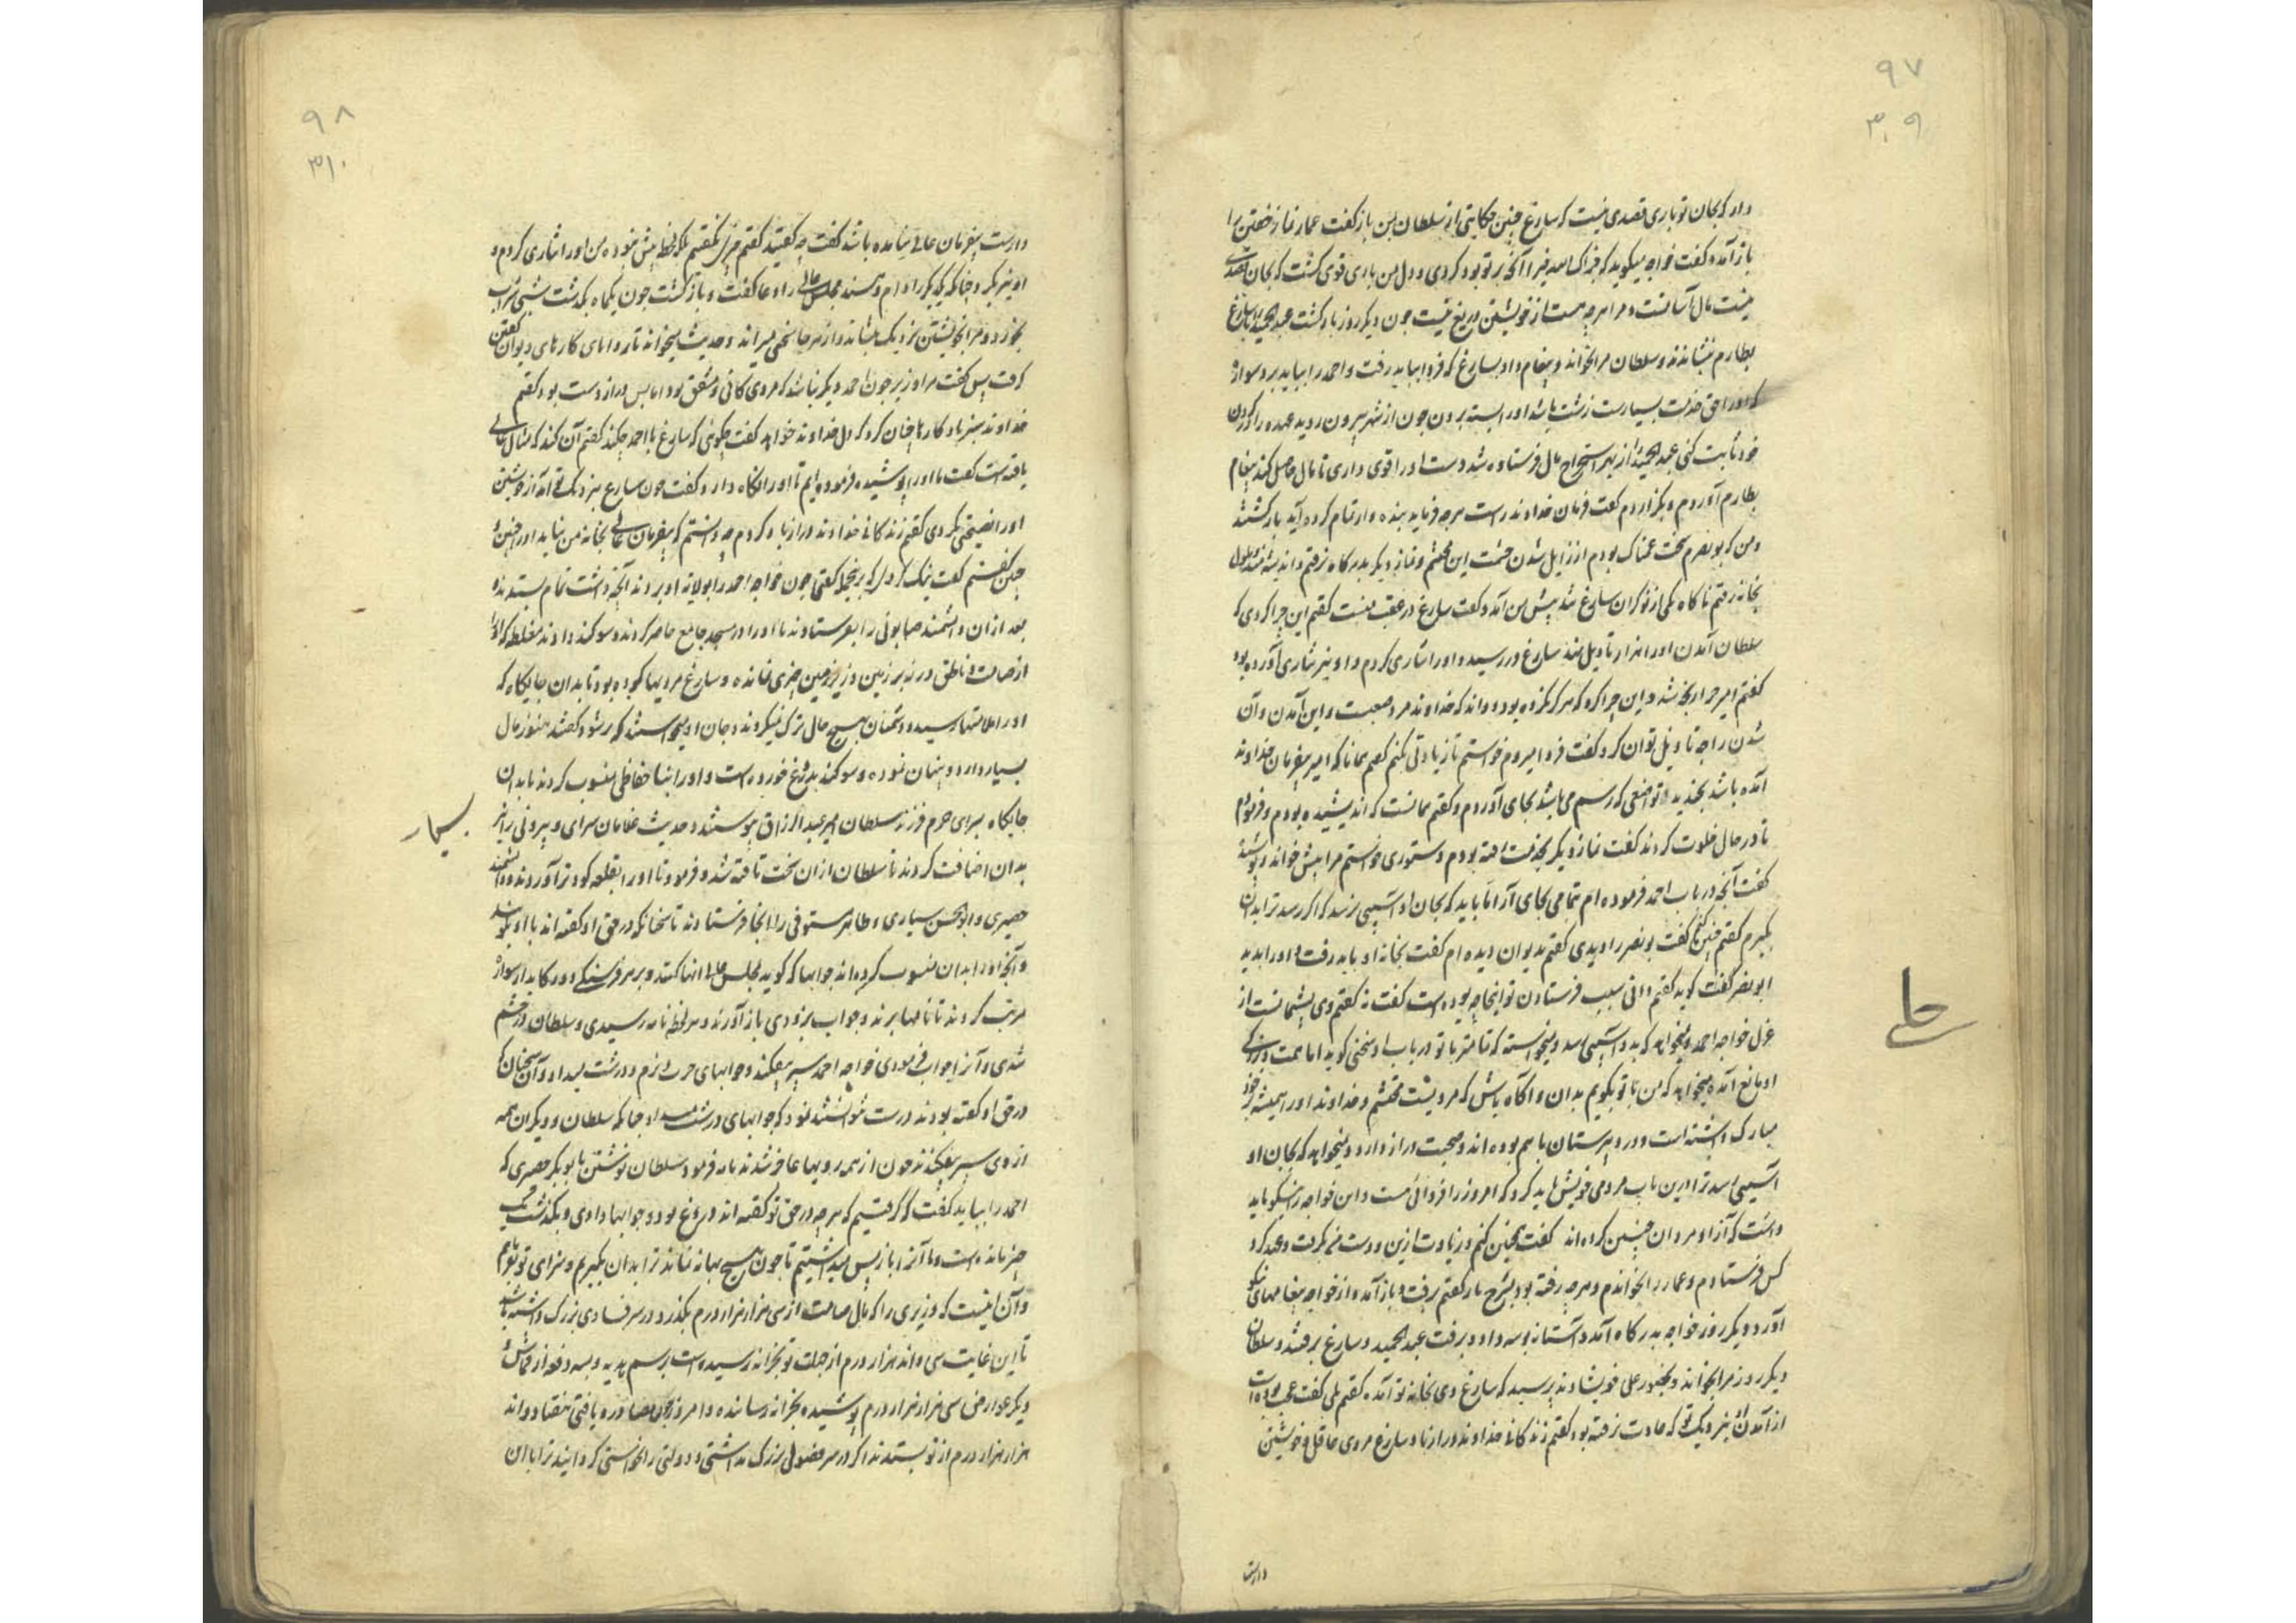 ۹۷
۳۰۹
دارد که بجان تو باری قصدی نیست که سارغ چنین حکایتی از سلطان بمن باز گفت عمار نماز خفتن را
باز آمد و گفت خواجه میگوید که جزاک الله خیرا آنچه بر تو بود کردی و دل من باری قوی گشت که بجان قصدی
نیست مال آسانست و مرا هرچه هست از خویشتن دریغ نیست چون دیگر روز بار گشت عبدالحمید را با سارغ
بطارم بنشاندند و سلطان مرا بخواند و پیغام داد بسارغ که فردا بباید رفت و احمد را بباید برد سواره
که او را حق خدمت بسیارست زشت باشد او را بسته بردن چون از شهر بیرون روید عهده را در گردن
خود ثابت کنی عبدالحمید از بهر استخراج مال فرستاده شده است او را قوی داری تا مال حاصل کند پیغام
بطارم آوردم و بگزاردم گفت فرمان خداوند راست هرچه فرماید بنده وار تمام کرده آید بازگشتند
و من که بونصرم سخت غمناک بودم از زایل شدن حشمت این محتشم و نماز دیگر بدرگاه نرفتم و اندیشه مند ملول
بخانه رفتم ناگاه یکی از نوکران سارغ شد پیش من آمد و گفت سارغ در عقب منست گفتم این چرا کردی که
سلطان آمدن او را هزار تاویل نهند سارغ در رسید و او را نثاری کردم و او نیز نثاری آورده بود
گفتم امیر چرا رنجه شد و این چرا کرد که هرگز نکرده بود و داند که خداوند مرد صعبست و این آمدن و آن
شدن را چه تاویل توان کرد گفت فردا میروم خواستم تا زیادتی کنم گفتم همانا که امیر بفرمان خداوند
آمده باشد بخندید و تواضعی که رسم می باشد بجای آوردم و گفتم همانست که اندیشیده بودم و فرمودم
تا در حال خلوت کردند گفت نماز دیگر بخدمت رفته بودم دستوری خواستم مرا پیش خواند و پوشیده
گفت آنچه در باب احمد فرموده ام تمامی بجای آر اما باید که بجان او آسیبی نرسد که اگر رسد ترا بدان
بگیرم گفتم چنین کنم گفت بونصر را دیدی گفتم بدیوان دیده ام گفت بخانه او باید رفت و او را بدید
ابونصر گفت گوید گفتم دانی سبب فرستادن تو اینجا چه بوده است گفت نه گفتم وی پشیمانست از
عزل خواجه احمد و نمیخواهد که بدو آسیبی رسد و میخواسته که تا مهتر با تو در باب او سخنی گوید اما همت و بزرگی
او مانع آمده میخواهد که من با تو بگویم بدان و آگاه باش که مردیست محتشم و خداوند او را همیشه بر خود
مبارک داشته است و در دبیرستان با هم بوده اند و صحبت دراز دارد و نمیخواهد که بجان او
آسیبی رسد ترا درین باب مردمی خویش باید کرد که امروز را فردائی است و این خواجه را نیکو باید
داشت که آزاد مردان چنین کرده اند گفت همچنین کنم و زیادت ازین و دست من بگرفت و عهد کرد
کس فرستادم و عمار را بخواندم و هرچه رفته بود بشرح باز گفتم برفت و باز آمد و از خواجه پیغامهای نیکو
آورد و دیگر روز خواجه بدرگاه آمد و آستانه بوسه داد و برفت عبدالحمید و سارغ برفتند و سلطان
دیگر روز مرا بخواند و بحضور علی خویشاوند پرسید که سارغ دی بخانه تو آمد گفتم بلی گفت عجب بوده است
از آمدن او بنزدیک تو که عادت نرفته بود گفتم زندگانی خداوند دراز باد سارغ مردی عاقل و خویشتن
دارست
حاصلی
۹۸
۳۱۰
دارست بفرمان عالی بیامده باشد گفت چه گفتید گفتم چیزی نگفتم لکن لحظه پیش نبود و من او را نثاری کردم و
او نیز بکرد چنانکه یکدیگر را وام دهند و مجلس عالی را دعا گفت و بازگشت چون یکماه بگذشت شبی شراب
بخورد و مرا بخویشتن نزدیک بنشاند و از هر جا سخن میراند و حدیث میخواند تا روانی کارهای دیوان گفتن
گرفت پس گفت مرا وزیر چون احمد دیگر نباشد که مردی کافی و مشفق بود اما بس دراز دست بود گفتم
خداوند بنده باد کارها چنان کرد که دل خداوند خواهد گفت چگوئی که سارغ با احمد چه کند گفتم آن کند که مثال عالی
یافته است گفت ما او را پوشیده فرموده ایم تا او را نگاه دارد و گفت چون سارغ بنزدیک تو آمد از خویشتن
او را نصیحتی کردی گفتم زندگانی خداوند دراز باد کردم چه دانستم که بفرمان عالی بخانه من بیاید او را چنین و
چنین گفتم گفت نیک کردی که برین جمله گفتی چون خواجه احمد را بولایة او بردند آنچه داشت تمام بستدند
بعد از آن دانشمند صابونی را بفرستادند تا او را در مسجد جامع حاضر کردند و سوگند دادند مغلظه که او را
از صامت و ناطق در زبر زمین و زیر زمین چیزی نمانده و سارغ مردیها کرده بود تا بدان جایگاه که
او را ملامتها رسید و دشمنان بهیچ حال ترک نمیکردند و جان او میخواستند که برشود گفتند هنوز مال
بسیار دارد و پنهان نموده و سوگند بدروغ خورده است و او را بنا حفاظی منسوب کردند تا بدان
جایگاه بسرای حرم فرزند سلطان امیر عبدالرزاق پیوستند و حدیث غلامان سرای و بیرونی را نیز
بدان اضافت کردند تا سلطان از آن سخت تافته شد و فرمود تا او را بقلعه کودتر آوردند و دانشمند
حصیری و ابوالحسن سیاری و طاهر مستوفی را آنجا فرستادند تا سخنانیکه در حق او گفته اند با او بگویند
و آنچه او را بدان منسوب کرده اند جوابها که گوید بمجلس عالی انها کنند و بر هر فرسنگی دو رکابدار سوار
مرتب کردند تا نامها برند و جواب بزودی باز آورند و هر لحظه نامه رسیدی و سلطان در خشم
شدی و آنرا جواب فرمودی خواجه احمد سپر نیفکند و جوابهای حرب نرم و درشت میداد و آن سخنان که
در حق او گفته بودند درست نتوانستند نمود که جوابهای درشت میداد چنانکه سلطان و دیگران همه
از وی سپر بیفکندند چون از همه رویها عاجز شدند نامه فرمود سلطان نوشتن با بوبکر حصیری که
احمد را بباید گفت که گرفتیم که هرچه در حق تو گفته اند دروغ بود و جوابها دادی و بگذشت یک
چیز مانده است و ما آنرا باز پس میداشتیم تا چون هیچ بهانه نماند ترا بدان بگیریم و سزای تو بتو دهیم
و آن اینست که وزیری را که مال صامت از سی هزار هزار درم بگذرد در سر فسادی بزرگ داشته باشد
تا این غایت سی و اند هزار درم از جهت تو بخزانه رسیده است برسم هدیه و بسه دفعه از قماش و
دیگر عوارض سی هزار هزار درم پوشیده بخزانه رسانده و امروز بحکم مصادره یافتی هفتاد و اند
هزار هزار درم از تو بستدند اگر در سر فضولی بزرگ نداشتی و دولتی را نخواستی گردانید ترا با این
بسیار